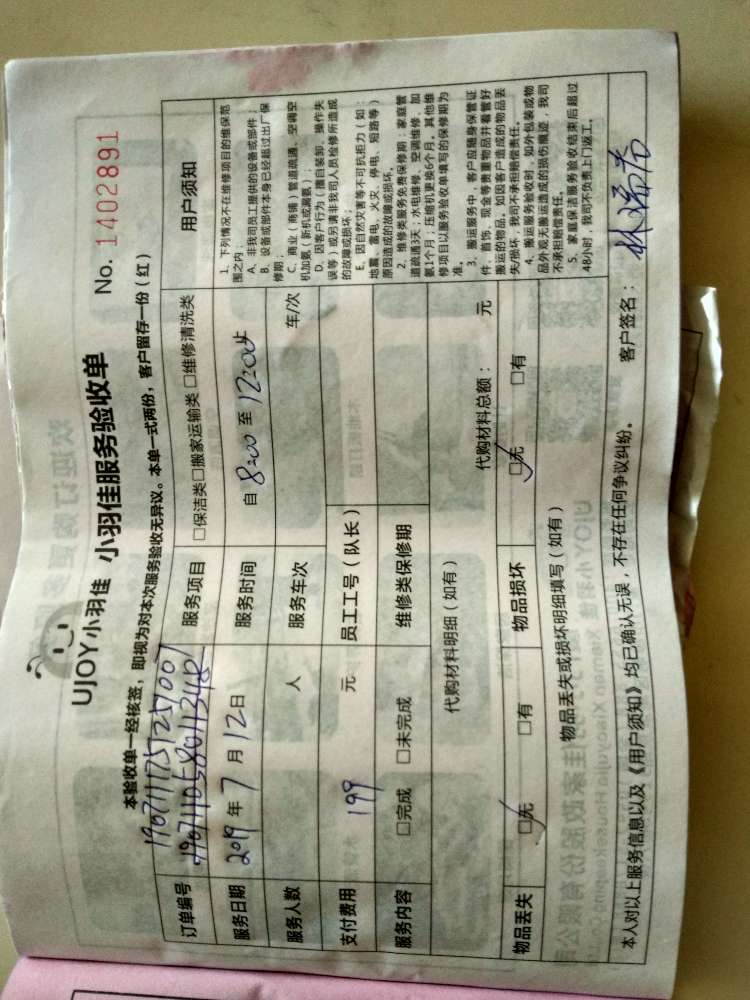 UJOY小羽佳 小羽佳服务验收单 No. 1402891
本验收单一经核签，即视为对本次服务验收无异议。本单一式两份，客户留存一份（红）
订单编号 服务项目 □保洁类□搬家运输类 □维修清洗类 用户须知
服务日期 2019 年 7 月 12 日 服务时间 自 8:00 至 12:00止
服务人数 人 服务车次 车/次
支付费用 199 元 员工工号（队长）
服务内容 □完成 □未完成 维修类保修期
代购材料明细（如有） 代购材料总额： 元
物品丢失 ☑无 □有 物品损坏 ☑无 □有
物品丢失或损坏明细填写（如有）
1. 下列情况不在维修项目的维保范
围之内：
A、非我司员工提供的设备或部件；
B、设备或部件本身已经超过出厂保
修期；
C、商业（商铺）管道疏通、空调空
机加氨（新机或漏氨）；
D、因客户行为（擅自装卸、操作失
误等）或另请非我司人员检修所造成
的故障或损坏；
E、因自然灾害等不可抗拒力（如：
地震、雷电、火灾、停电、短路等）
原因造成的故障或损坏。
2、维修类服务免费保修期：家庭管
道疏通3天；水电维修、空调维修、加
氨1个月；压缩机更换6个月。其他维
修项目以服务验收单填写的保修期为
准。
3、搬运服务中，客户应随身保管证
件、首饰、现金等贵重物品并看管好
搬运的物品。如因客户造成的物品丢
失/损坏，我司不承担赔偿责任。
4、搬运服务验收时，如外包装或物
品外观无搬运造成的损伤痕迹，我司
不承担赔偿责任。
5、家庭保洁服务验收结束后超过
48小时，我司不负责上门返工。
本人对以上服务信息以及《用户须知》均已确认无误，不存在任何争议纠纷。 客户签名：